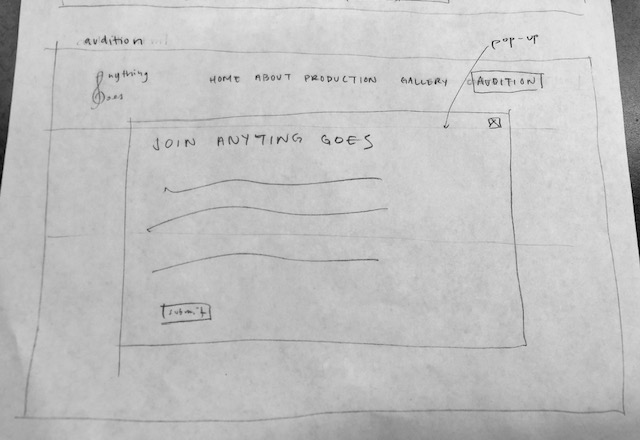 audition
pop-up
nything
oes
HOME ABOUT PRODUCTION GALLERY AUDITION
JOIN ANYTING GOES
submit